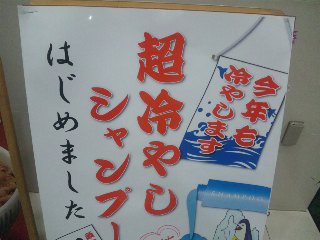 今年も
冷やします
超冷やし
シャンプー
はじめました